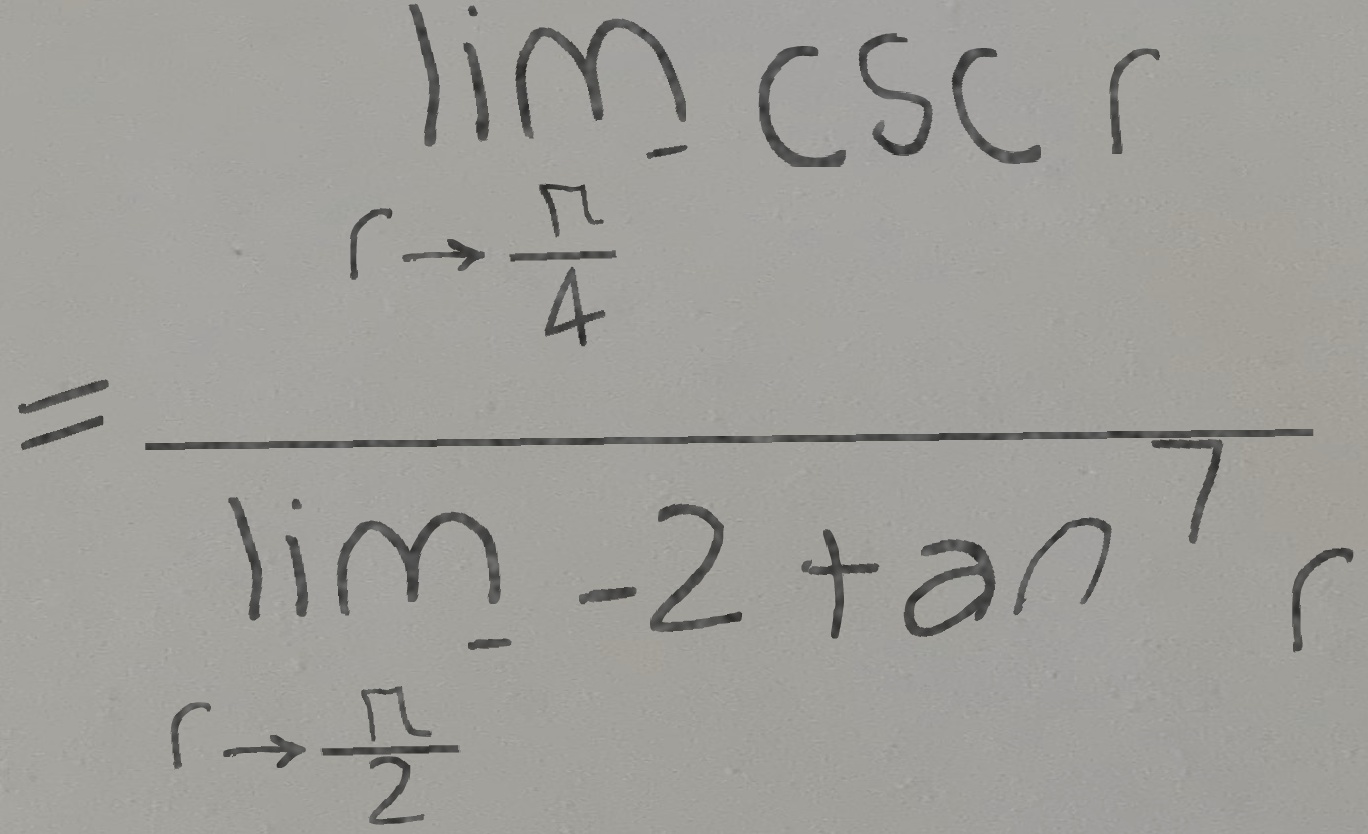 = \frac{\lim_{r \to \frac{\pi}{4}^-} \csc r}{\lim_{r \to \frac{\pi}{2}^-} -2 \tan^7 r}